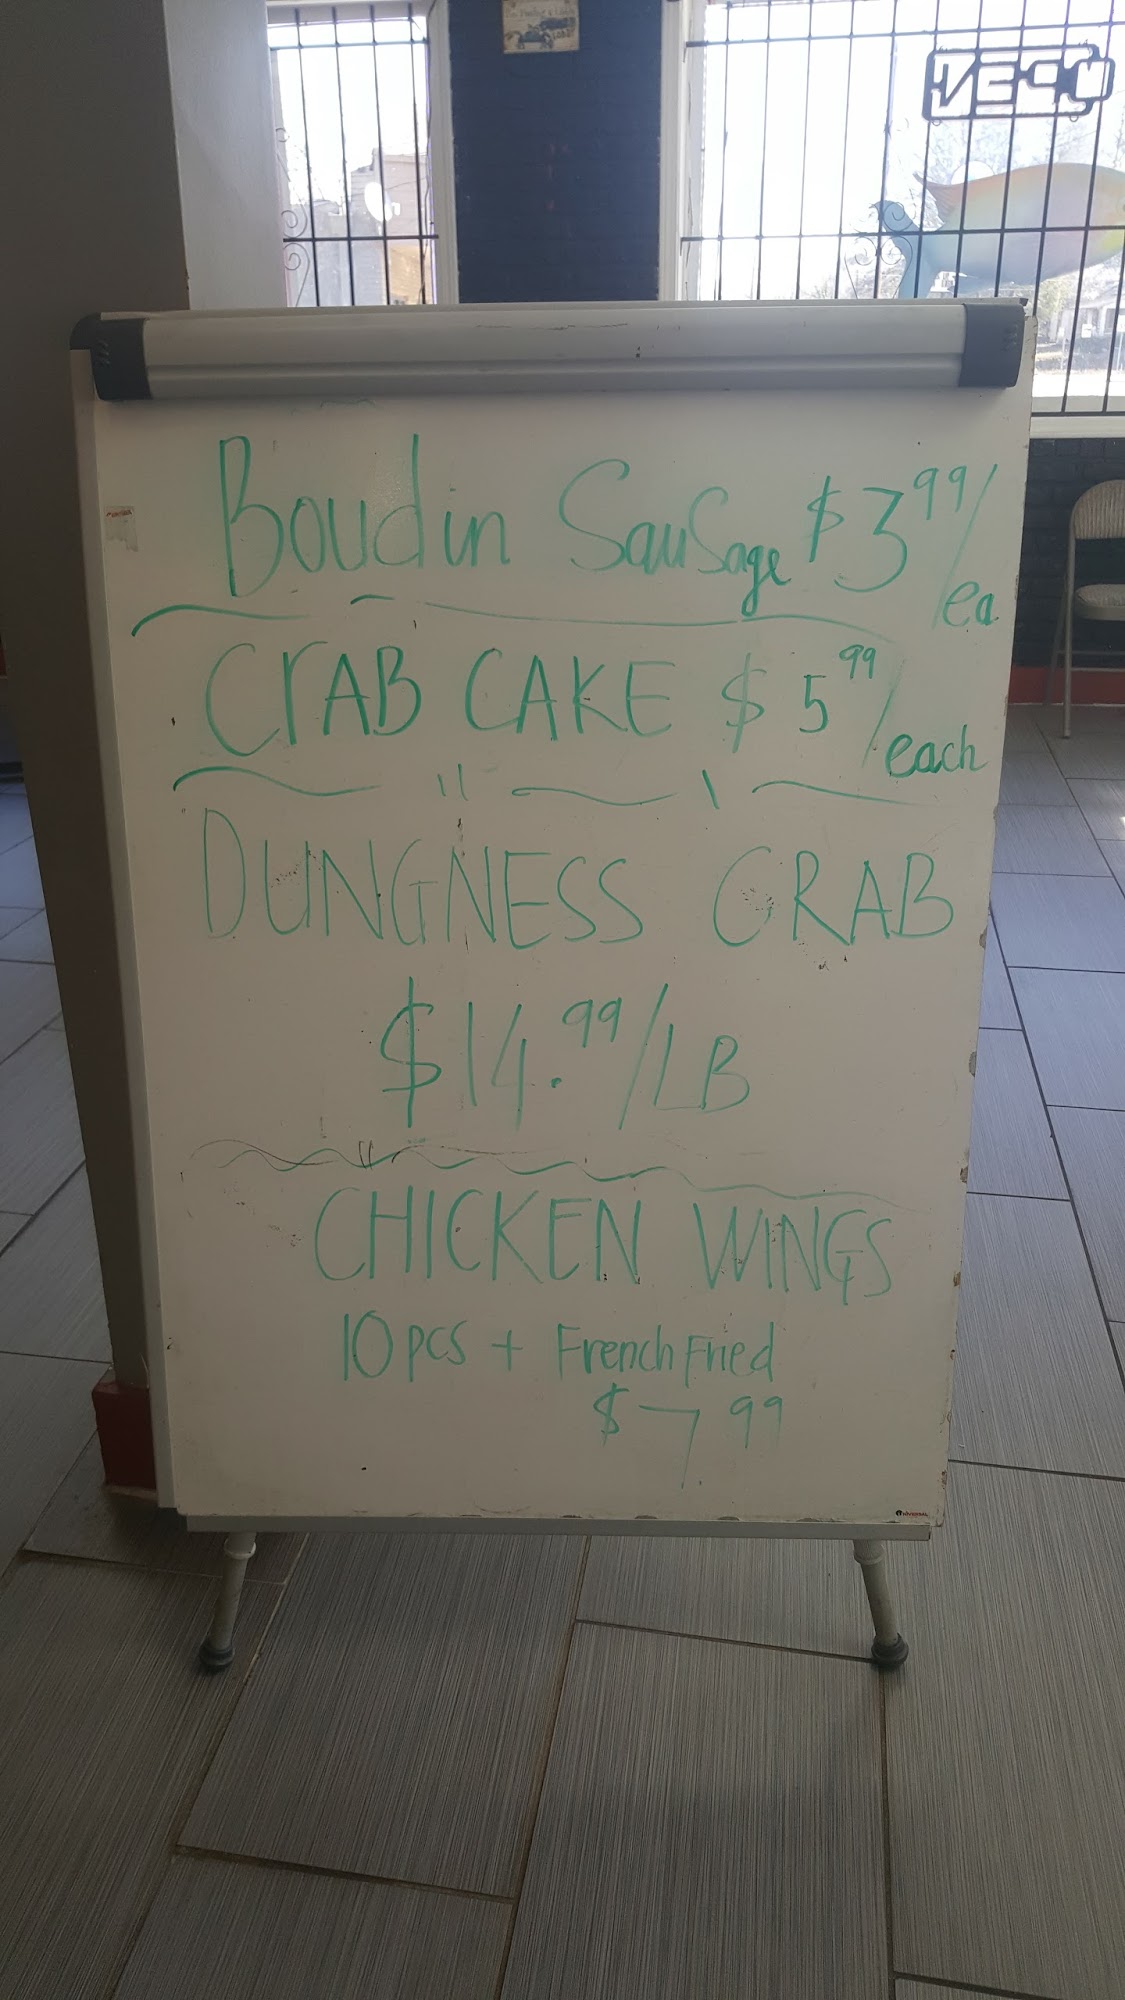 OPEN
Boudin Sausage $3.99/ea
CRAB CAKE $5.99/each
DUNGNESS CRAB
$14.99/LB
CHICKEN WINGS
10 PCS + French Fried
$7.99
UNIVERSAL